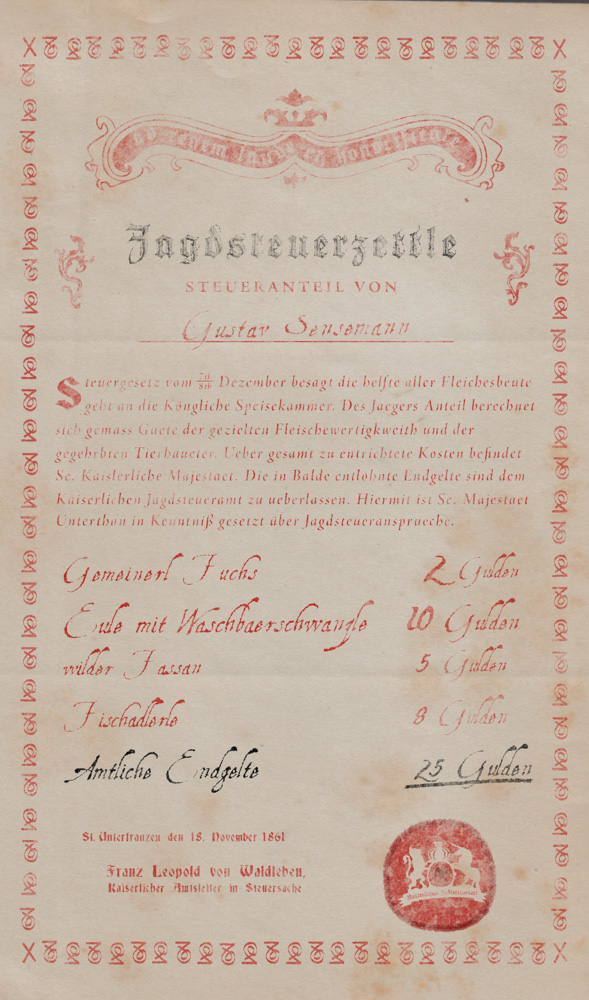 Jagdsteuerzettle
STEUERANTEIL VON
Gustav Sensemann
Steuergesetz vom Dezember besagt die helfte aller Fleichesbeute
geht an die Köngliche Speisekammer. Des Jaegers Anteil berechnet
sich gemass Guete der gezielten Fleischewertigkweith und der
gegehrbten Tierhaueter. Ueber gesamt zu entrichtete Kosten befindet
Se. Kaisferliche Majestaet. Die in Balde entlohnte Endgelte sind dem
Kaiserlichen Jagdsteueramt zu ueberlassen. Hiermit ist Se. Majestaet
Unterthon in Kenntniß gesetzt über Jagdsteueransprueche.
Gemeinerl Fuchs 2 Gulden
Eule mit Waschbaerschwanzle 10 Gulden
wilder Fassan 5 Gulden
Fischadlerle 8 Gulden
Amtliche Endgelte 25 Gulden
St. Unterfranzen den 18. November 1861
Franz Leopold von Waldleben,
Kaiserlicher Amtsleiter in Steuersache